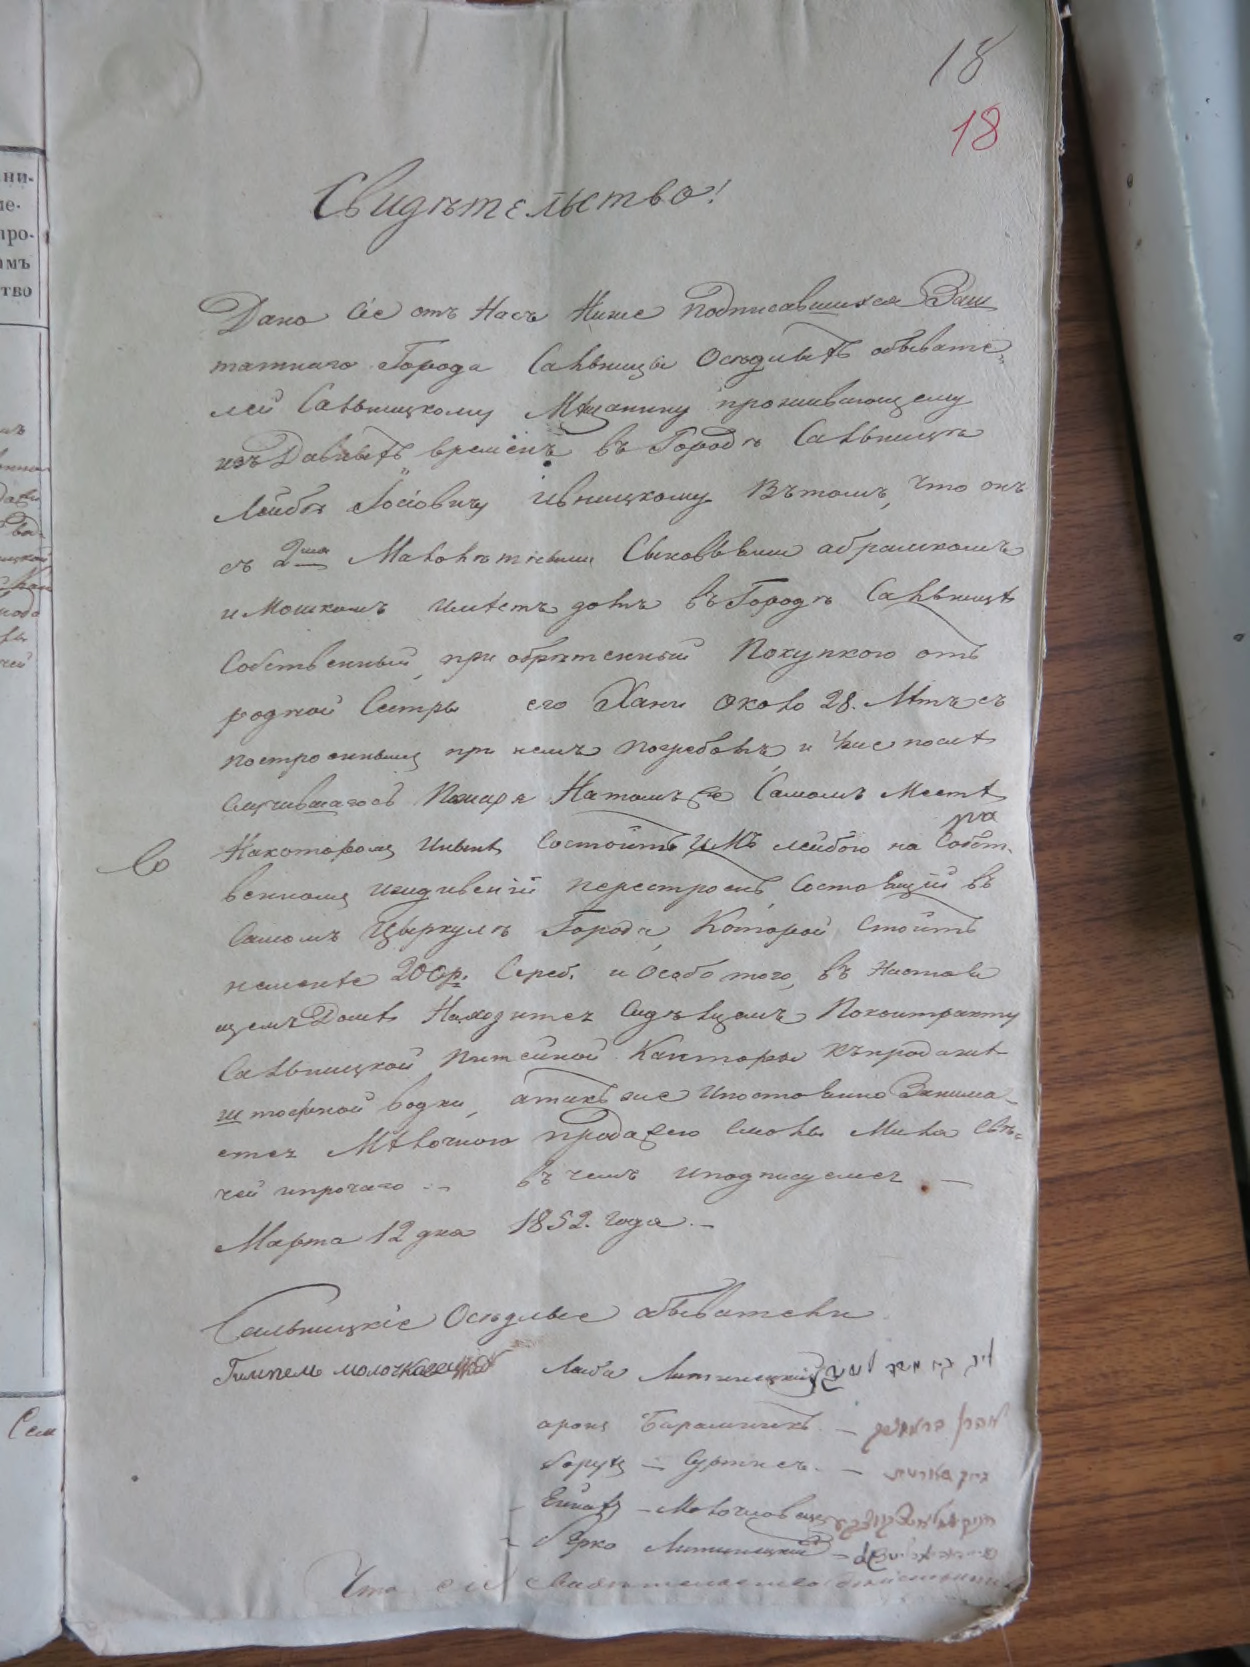 18
18
Свидѣтельство!
ни-
ле-
про-
имъ
тво
Дано сіе отъ насъ ниже подписавшихся Заш
татнаго Города Сальницы Осѣдлыхъ обывате,
лей Сальницкому Мѣщанину проживающему
изъ Давныхъ временъ въ Городѣ Сальницѣ
Лейбѣ Іосіовичу Ивницкому Въ томъ, что онъ
съ 2мя Малолѣтными Сыновьями абрамкомъ
и Мошкомъ имѣетъ домъ въ Городѣ Сальницѣ
Собственный, при обрѣтенный Покупкою отъ
родной Сестры его Хани около 28. лѣтъ съ
построеннымъ при немъ погребомъ, и уже послѣ
случившагось Пожара На томъ же Самомъ Местѣ
На которомъ инынѣ состоитъ имъ лейбою на Собст-
венномъ иждивеній перестроенъ, состоящій въ
самомъ Цыркулѣ Города, Которой стоитъ
неменѣе 200 р. Сереб. и особо того, въ настоя
щемъ Домѣ Находится сидѣльцомъ По контракту
Сальницкой питейной Канторы къ продажѣ
штофной водки, а такъ же и постоянно Занима-
ется Мѣлочною продажею смолы мыла свѣ-
чей и прочаго .-. въ чемъ и подписуемся —
Марта 12 дня 1852. года.—
Сальницкіе Осѣдлые обыватели
Гимпель
Лейба Литинецкій
аронъ Барамникъ —
Борухъ —
—
Берко Литинецкий —
Что сие свидѣтельство
Сем